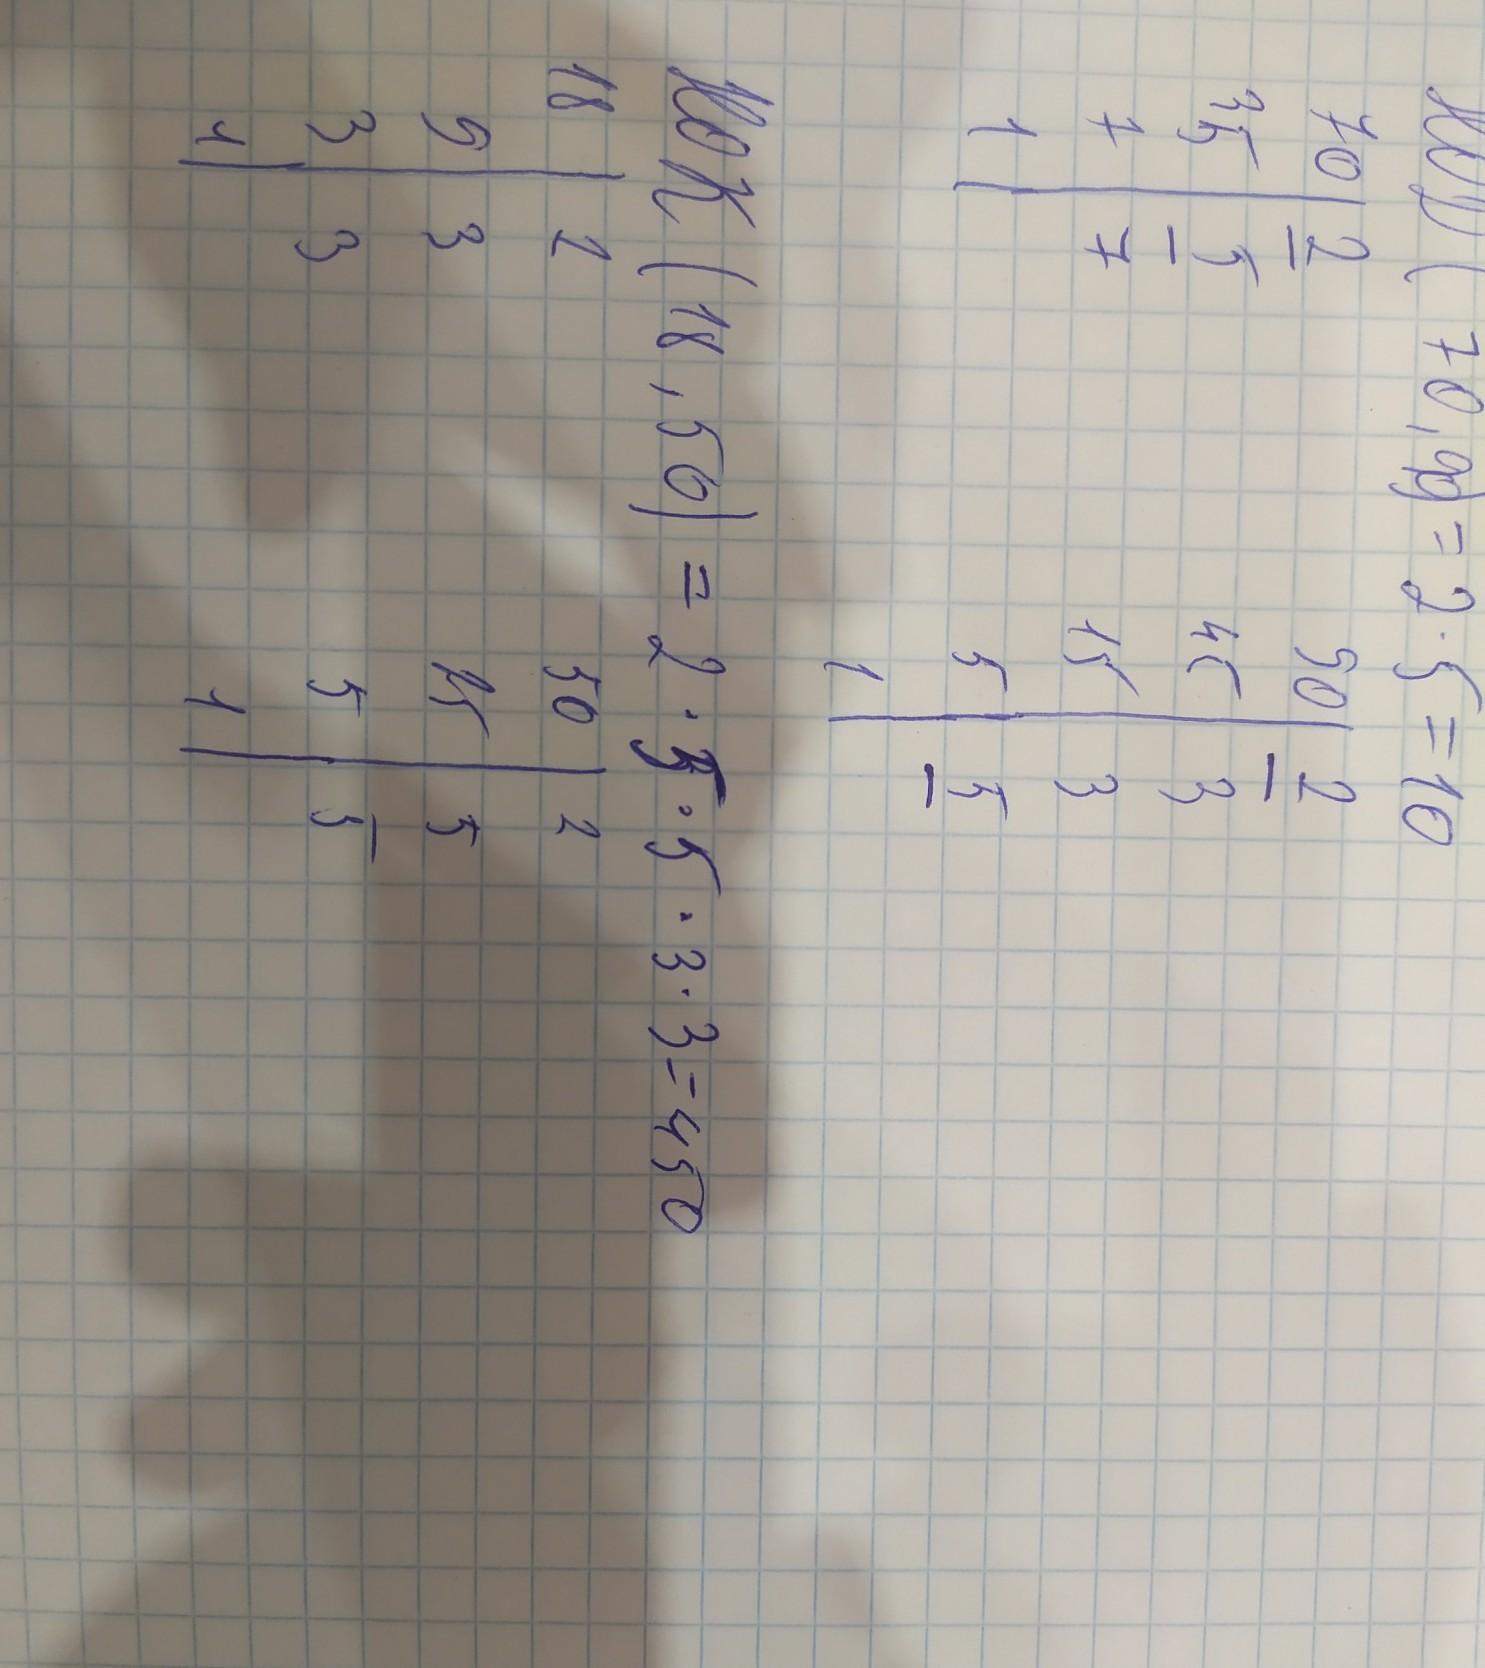 НОД (70,90) = 2 · 5 = 10
70 | 2 90 | 2
35 | 5 45 | 3
7 | 7 15 | 3
1 | 5 | 5
1 |
НОК (18,50) = 2 · 5 · 5 · 3 · 3 = 450
18 | 2 50 | 2
9 | 3 25 | 5
3 | 3 5 | 5
1 | 1 |